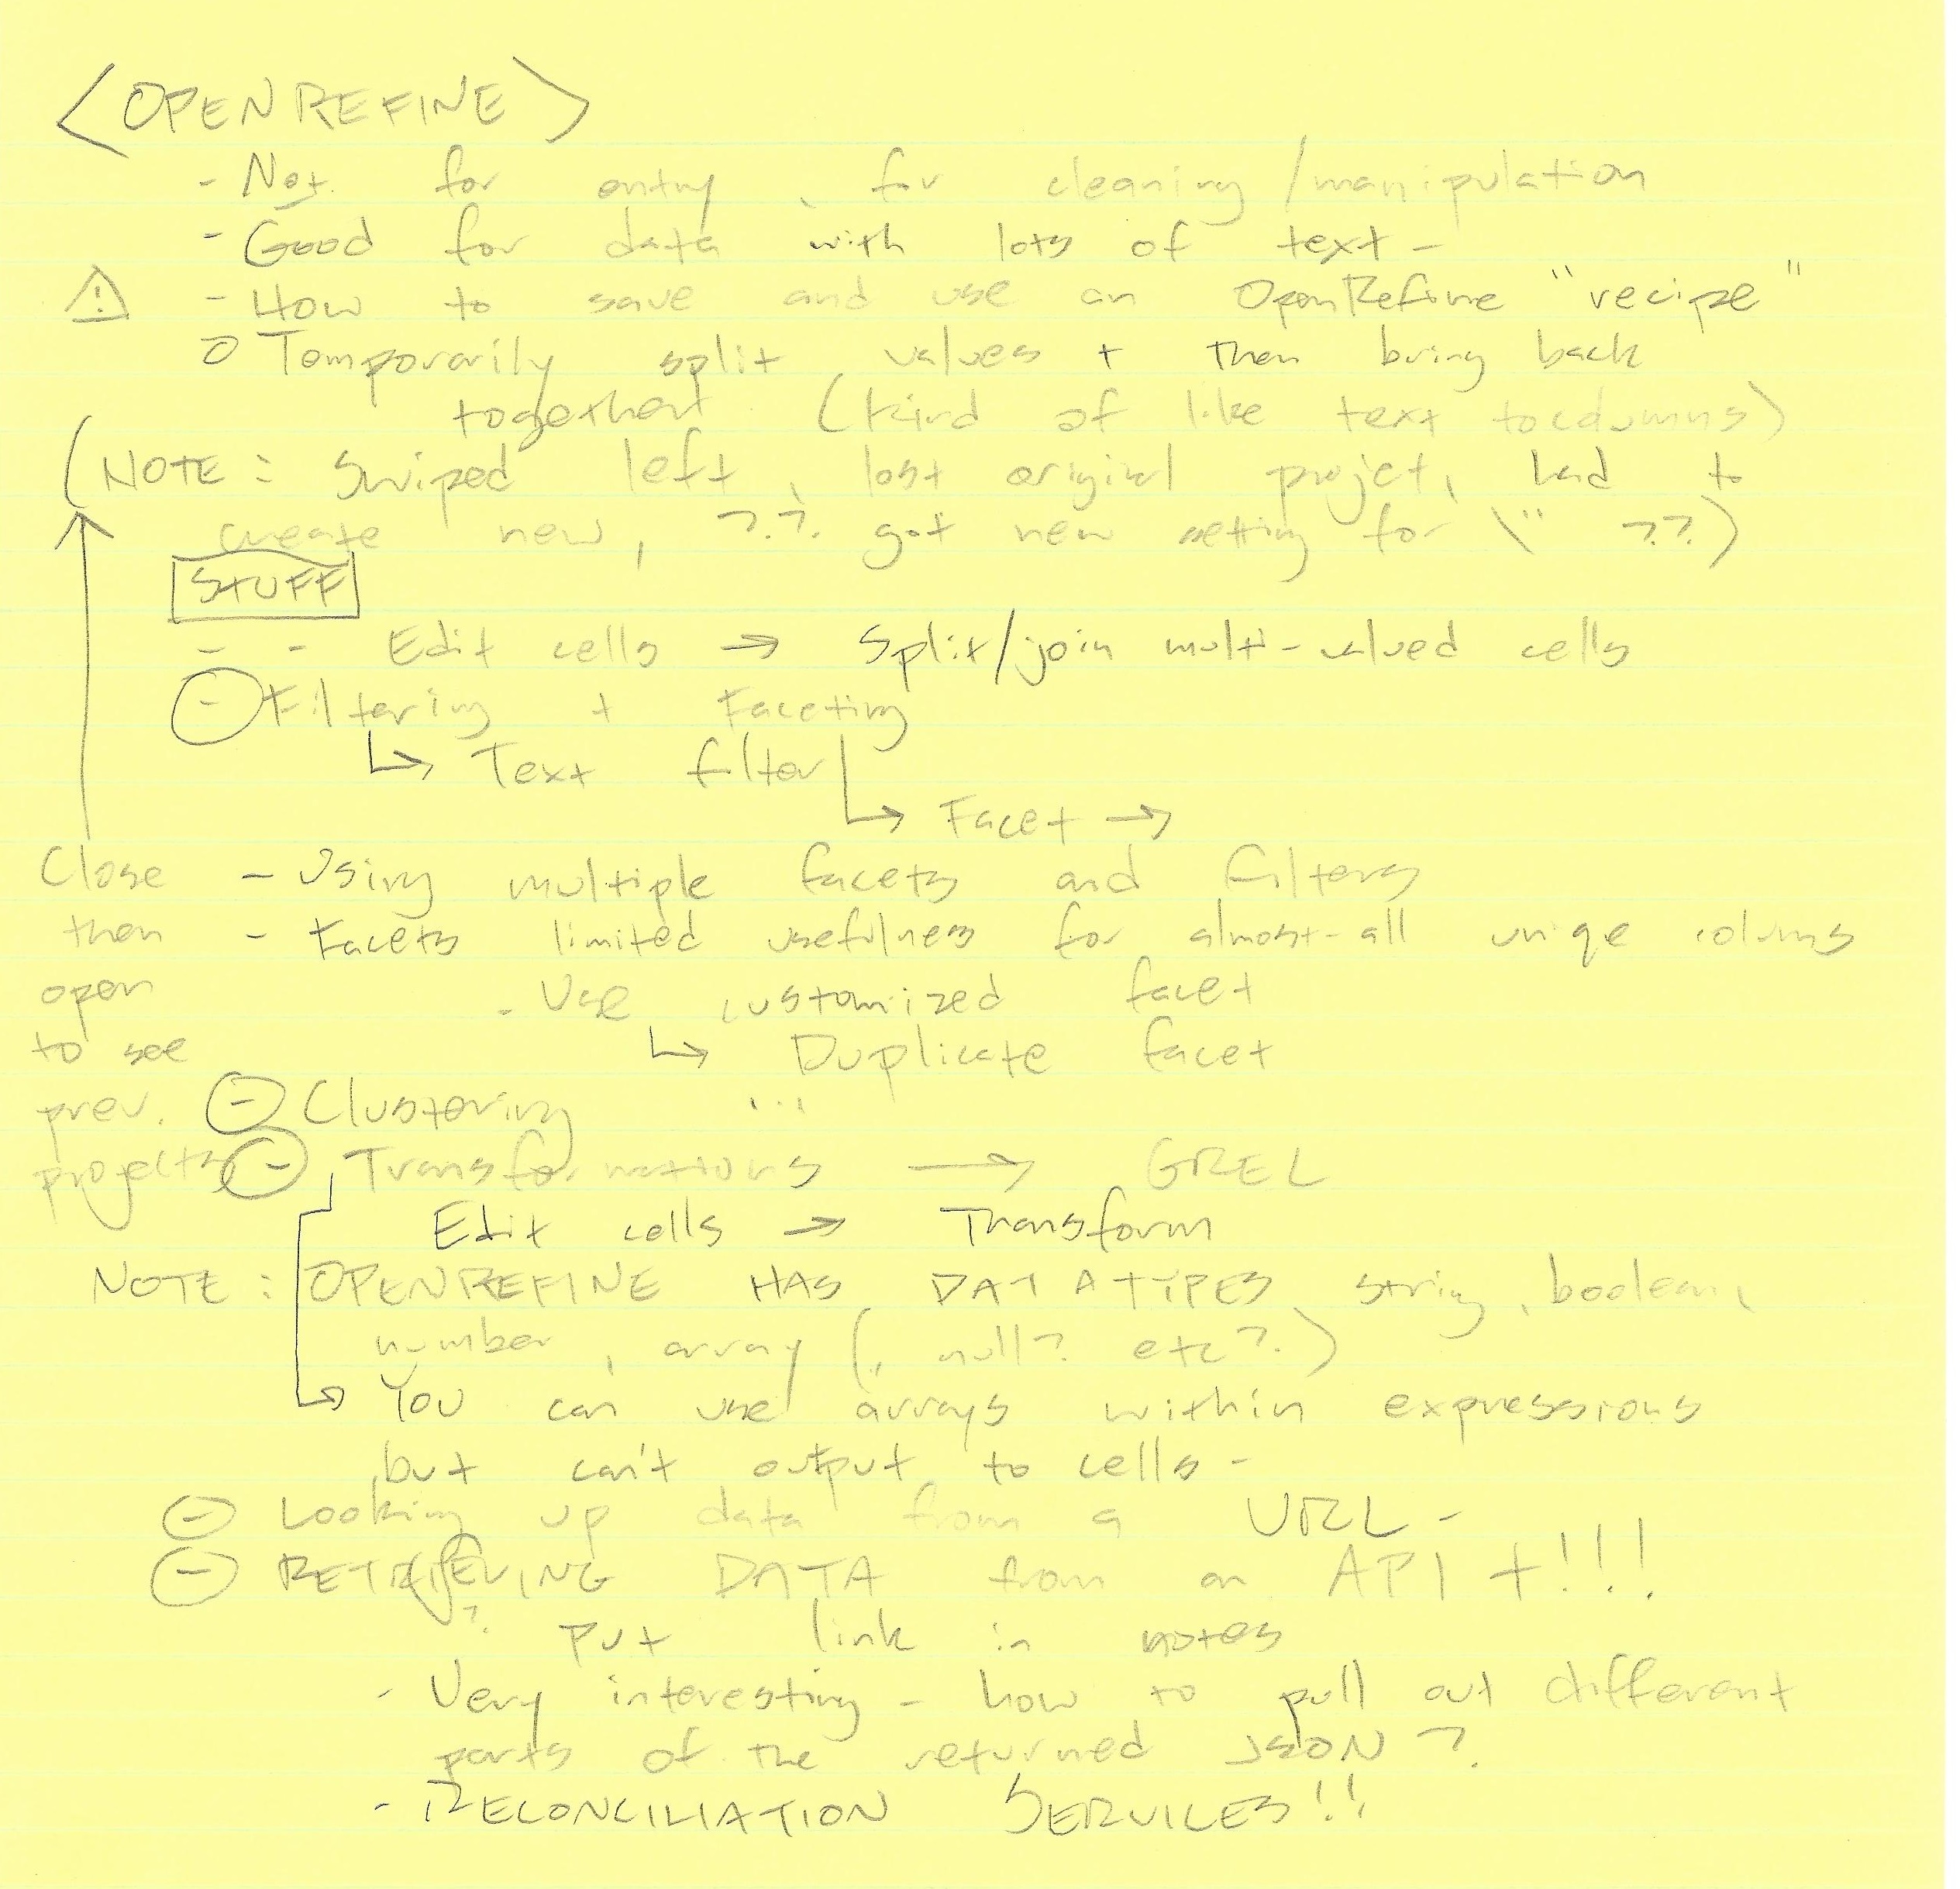 <OPENREFINE>
- Not for entry, for cleaning/manipulation
- Good for data with lots of text -
- How to save and use an OpenRefine "recipe"
o Temporarily split values + then bring back
together (kind of like text to columns)
(NOTE: Swiped left, lost original projet, had to
create new, ?? got new setting for \" ??)
STUFF
- - Edit cells → Split/join multi-valued cells
- Filtering + Faceting
↳ Text filter
↳ Facet →
- Using multiple facets and filters
- Facets limited usefulness for almost-all uniqe colums
- Use customized facet
↳ Duplicate facet
- Clustering ...
- Transformations → GREL
Edit cells → Transform
NOTE: OPENREFINE HAS DATATYPES string, boolean,
number, array (, null? etc?)
↳ You can use arrays within expressions
but can't output to cells -
- Looking up data from a URL -
- RETRIEVING DATA from an API +!!!
? Put link in notes
- Very interesting - how to pull out different
parts of the returned JSON?
- RECONCILIATION SERVICES!!
Close
then
open
to see
prev.
projects